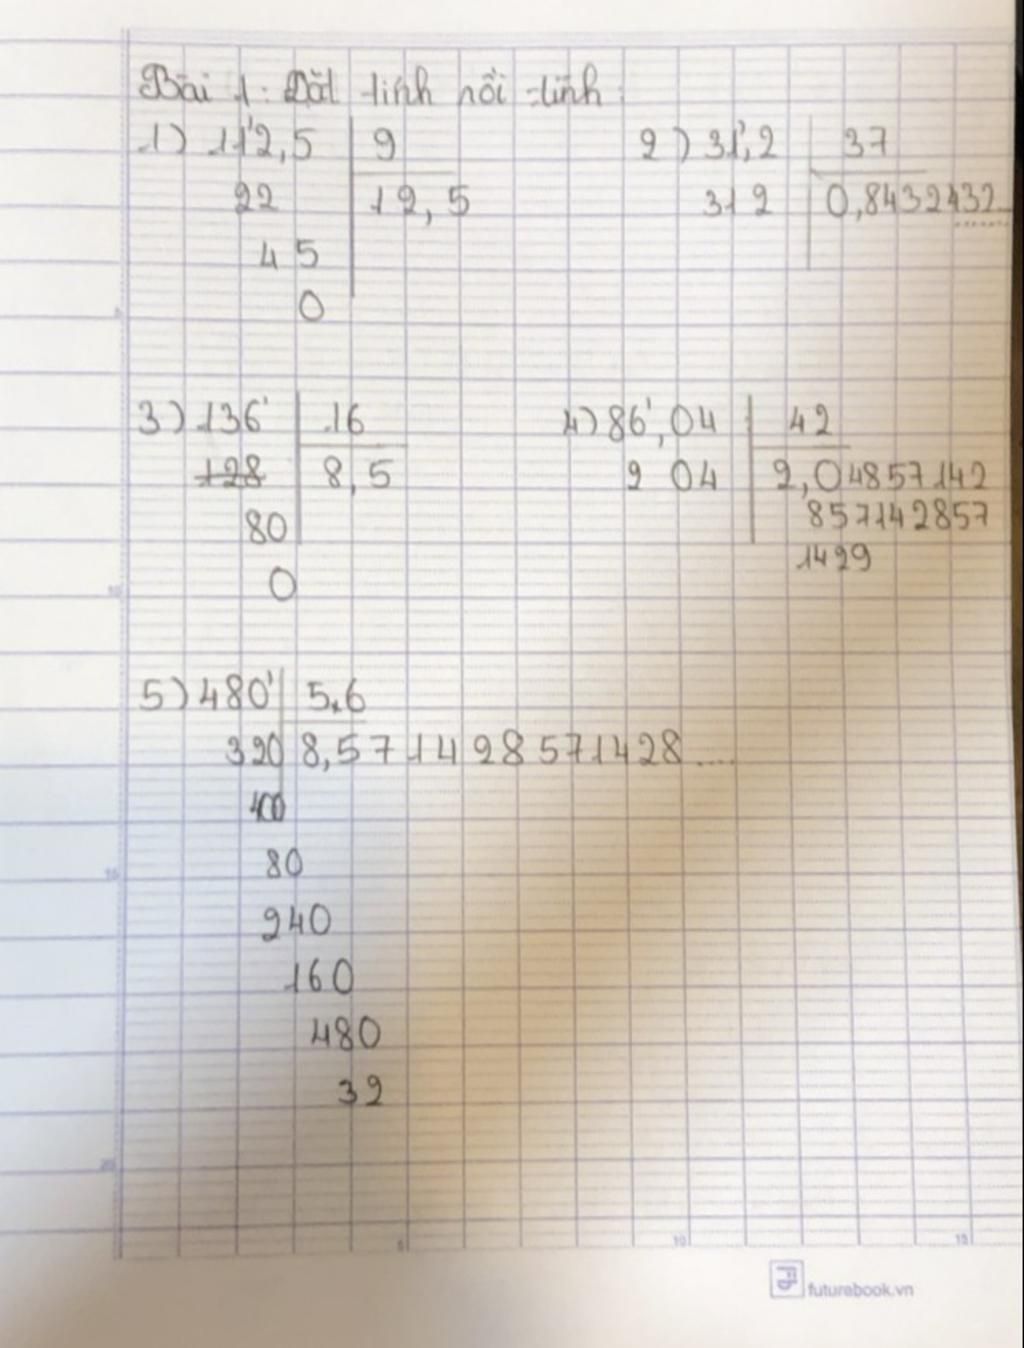 Bài 1: Đặt tính rồi tính:
1) 11'2,5 | 9
22 | 12,5
45
0
2) 31',2 | 37
312 | 0,8432432...
3) 136' | 16
128 | 8,5
80
0
4) 86',04 | 42
2 04 | 2,04857142
857142857
1429
5) 480' | 5,6
320 | 8,571428571428....
400
80
240
160
480
32
5
10
15
20
5
10
15
futurebook.vn